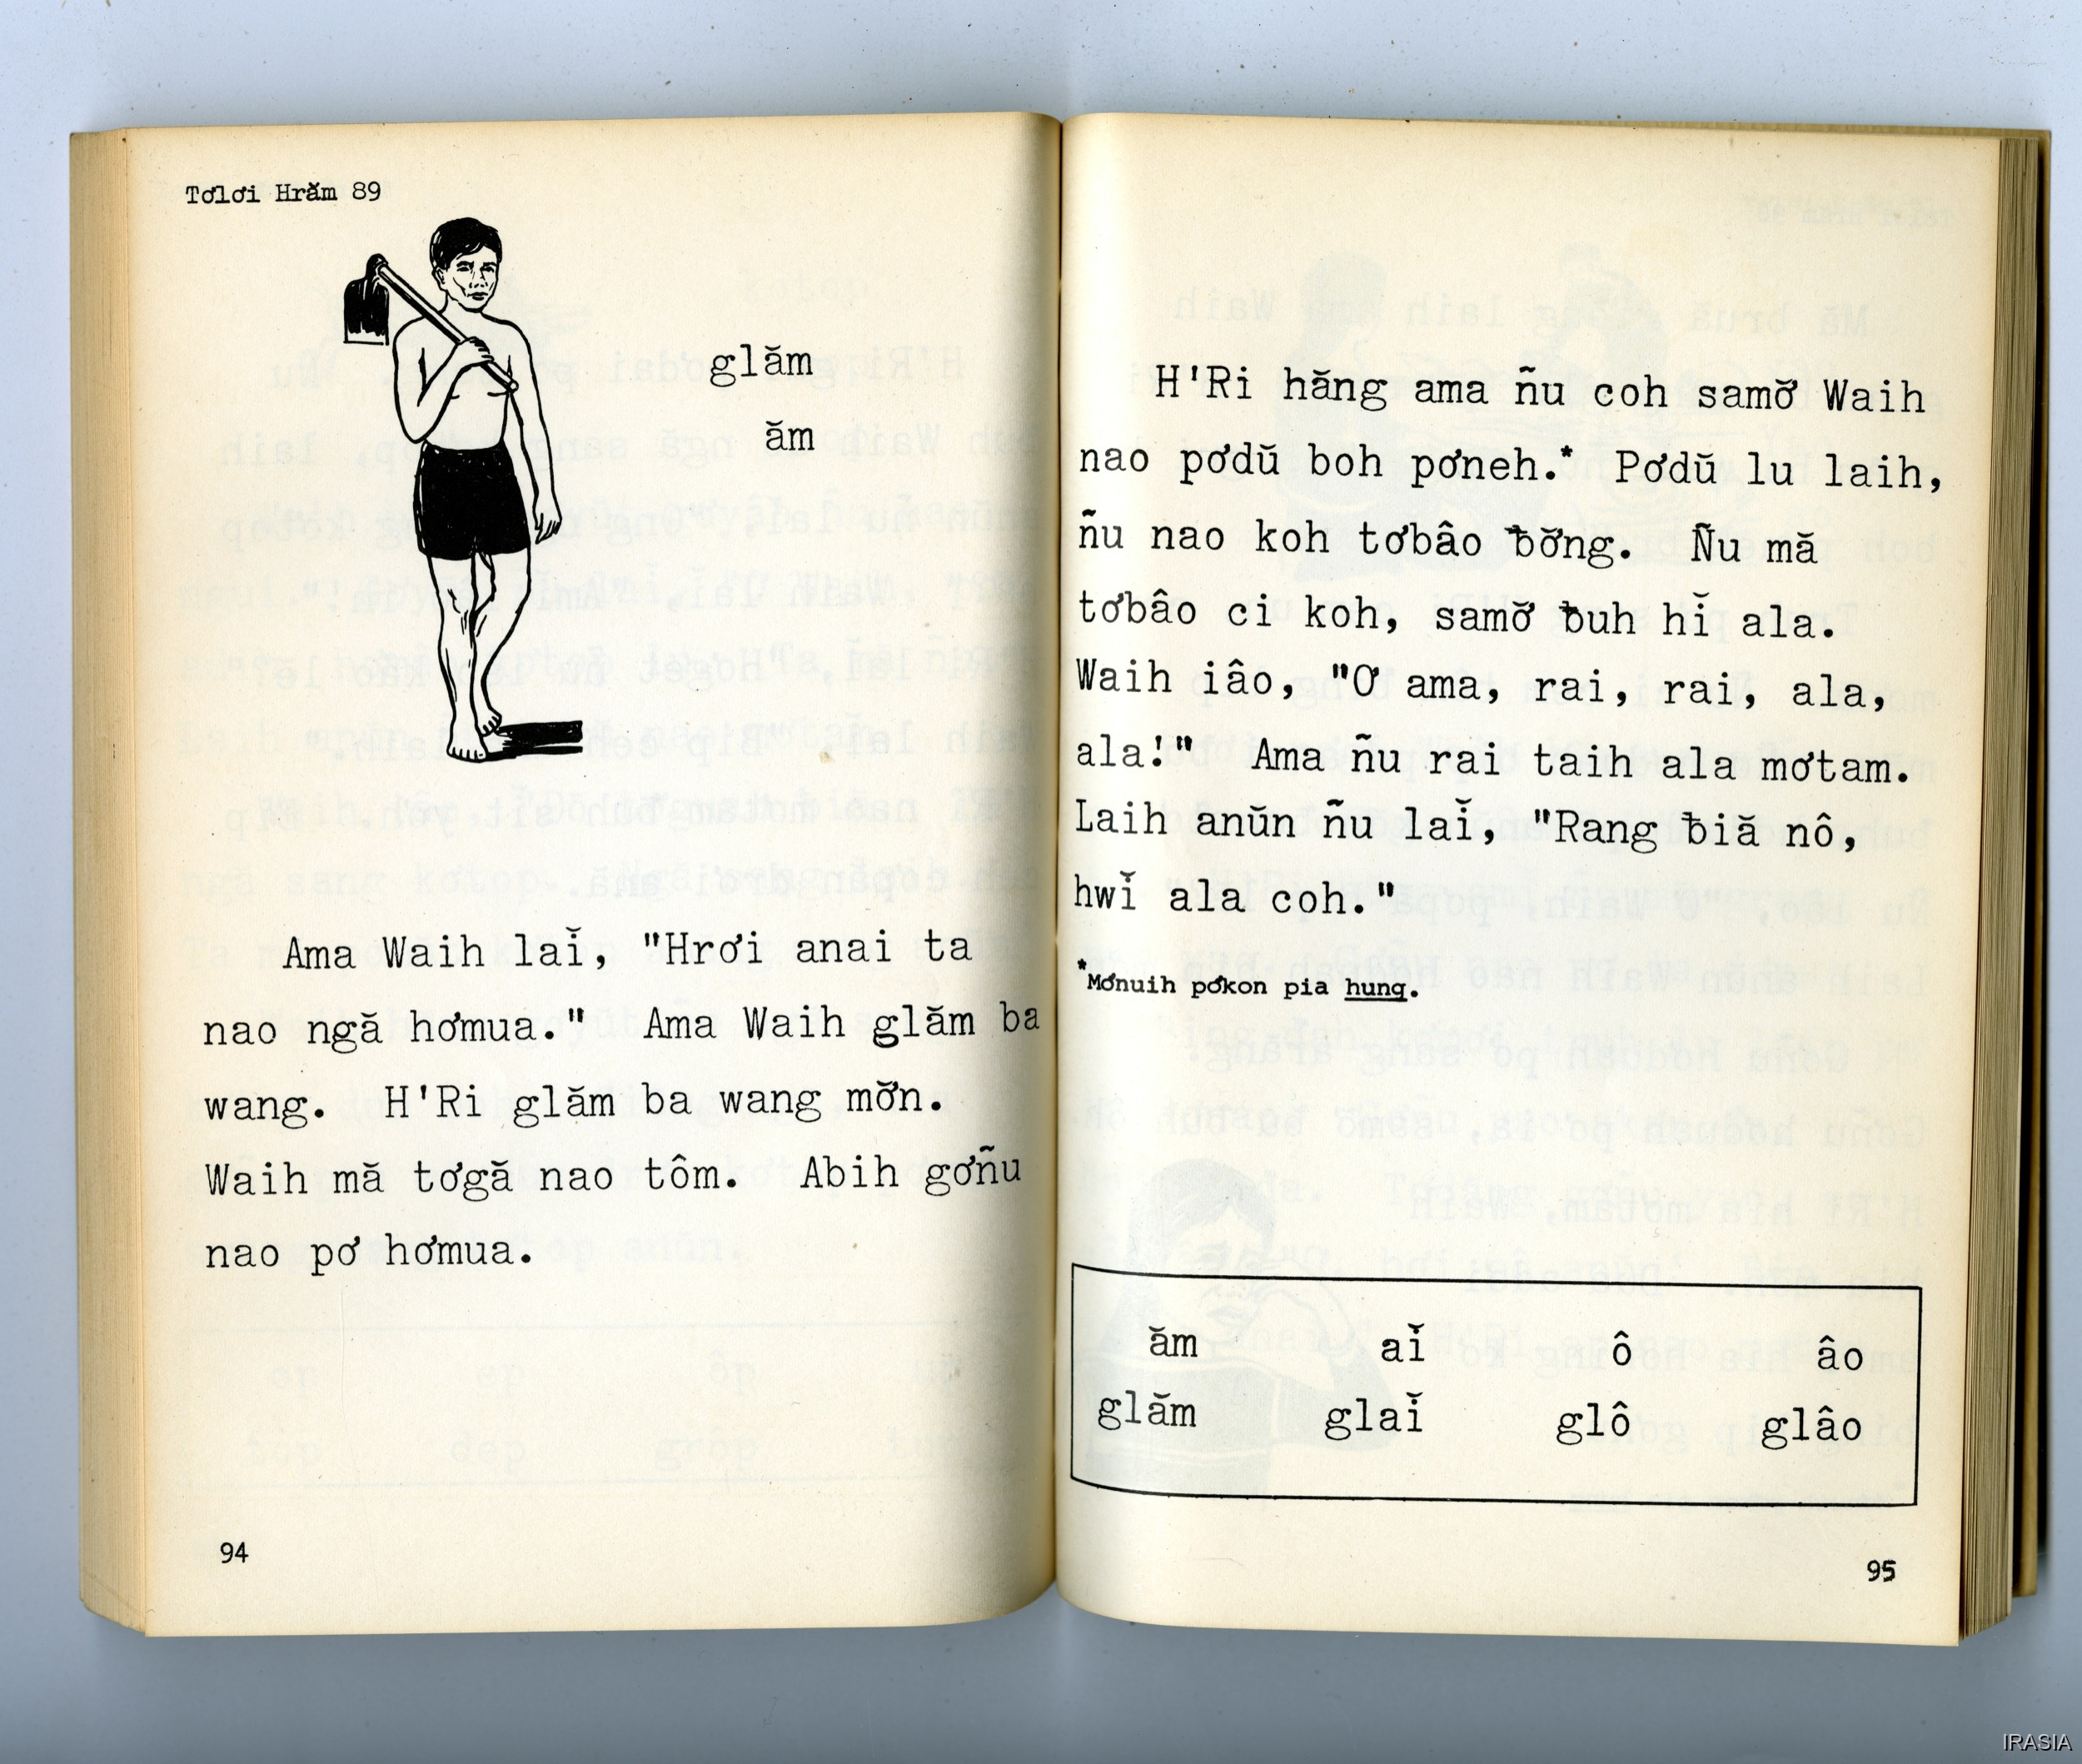 Tơlơi Hrăm 89
glăm
ăm
Ama Waih laĭ, "Hrơi anai ta
nao ngă hơmua."  Ama Waih glăm ba
wang.  H'Ri glăm ba wang mơ̆n.
Waih mă tơgă nao tôm.  Abih gơñu
nao pơ hơmua.
94
H'Ri hăng ama ñu coh samơ̆ Waih
nao pơdŭ boh pơneh.* Pơdŭ lu laih,
ñu nao koh tơbâo ƀơ̆ng.  Ñu mă
tơbâo ci koh, samơ̆ ƀuh hĭ ala.
Waih iâo, "Ơ ama, rai, rai, ala,
ala!"  Ama ñu rai taih ala mơtam.
Laih anŭn ñu laĭ, "Rang ƀiă nô,
hwĭ ala coh."
*Mơnuih pơkon pia hung.
ăm aĭ ô âo
glăm glaĭ glô glâo
95
IRASIA